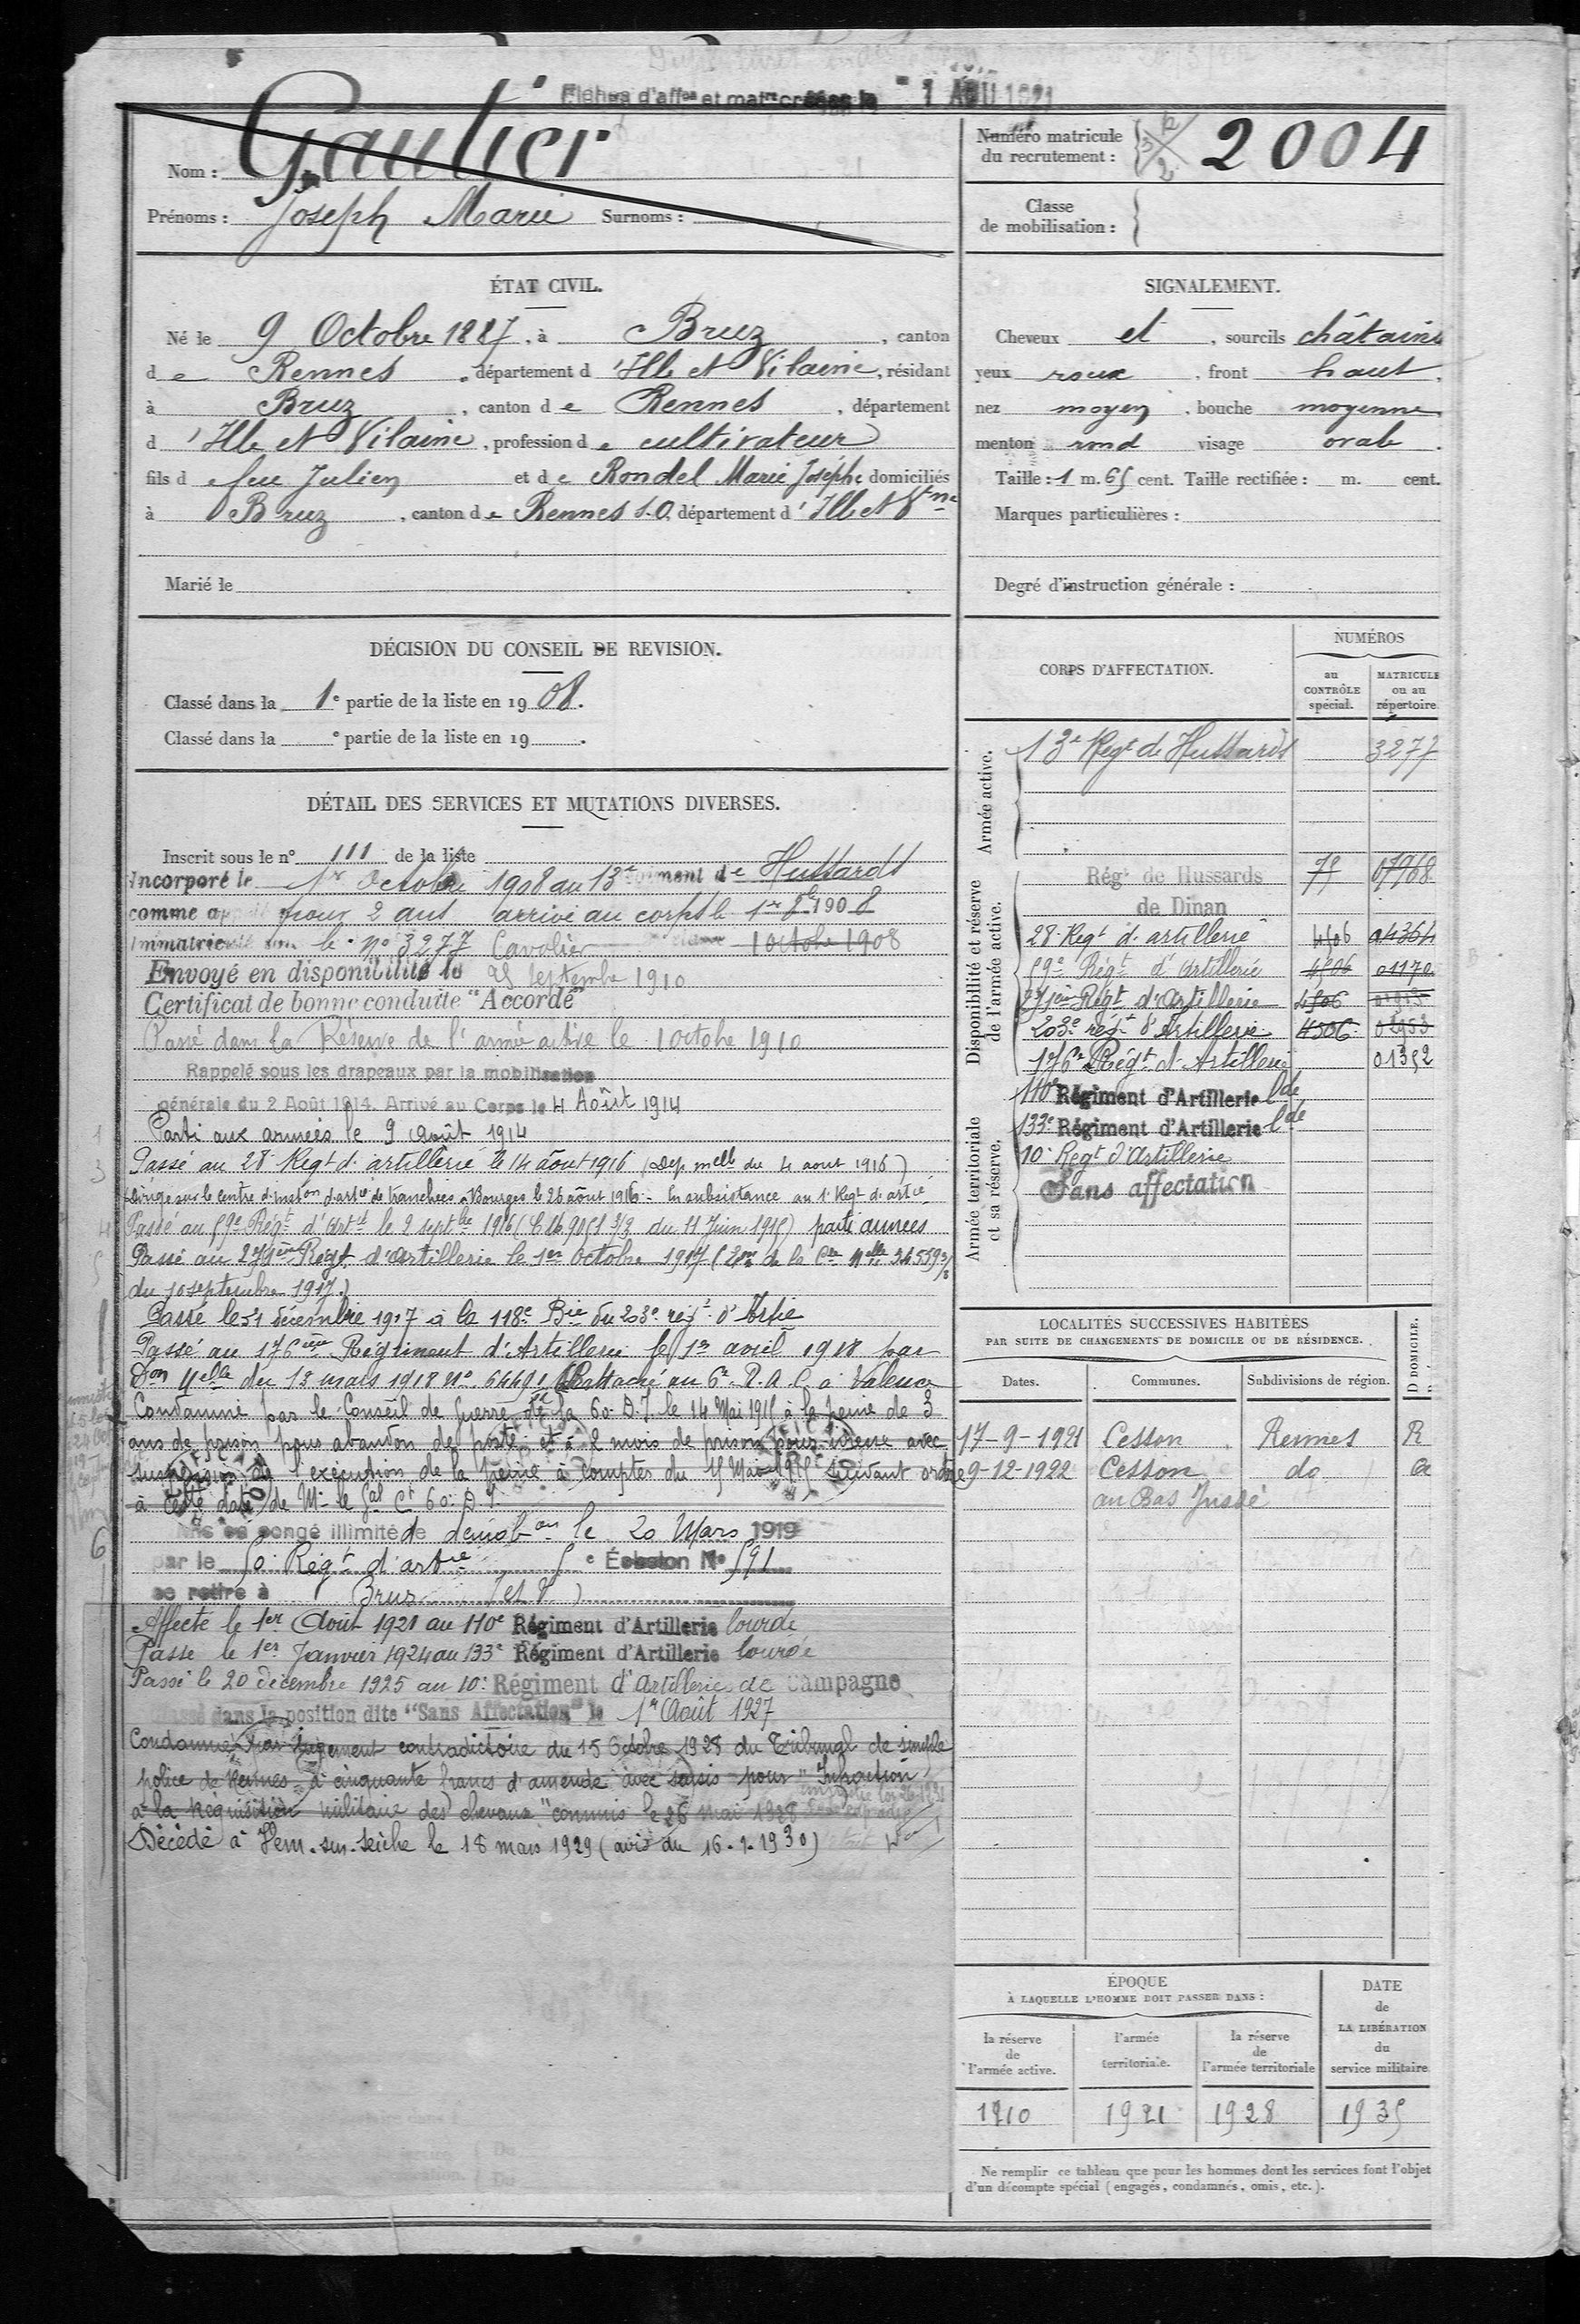 Fiches d'aff^on et mat^re créées le - 1 AOU 1921
Nom : Gautier
Prénoms : Joseph Marie Surnoms :
Numéro matricule
du recrutement : 2004
Classe
de mobilisation :
ÉTAT CIVIL.
Né le 9 Octobre 1887, à Bruz, canton
de Rennes, département d'Ille et Vilaine, résidant
à Bruz, canton de Rennes, département
d'Ille et Vilaine, profession de cultivateur
fils de feu Julien et de Rondel Marie Josèphe domiciliés
à Bruz, canton de Rennes S.O. département d'Ille et V^ne
Marié le
SIGNALEMENT.
Cheveux et, sourcils châtains
yeux roux, front haut,
nez moyen, bouche moyenne
menton rond visage ovale.
Taille : 1 m. 65 cent. Taille rectifiée : m. cent.
Marques particulières :
Degré d'instruction générale :
DÉCISION DU CONSEIL DE REVISION.
Classé dans la 1e partie de la liste en 1908.
Classé dans la e partie de la liste en 19 .
DÉTAIL DES SERVICES ET MUTATIONS DIVERSES.
Inscrit sous le n° 111 de la liste
Incorporé le 1er Octobre 1908 au 13e Régiment de Hussards
comme appelé pour 2 ans arrivé au corps le 1er 8bre 1908
Immatriculé sous le n° 3277 Cavalier 1 octobre 1908
Envoyé en disponibilité le 25 Septembre 1910
Certificat de bonne conduite "Accordé"
Passé dans la Réserve de l'armée active le 1 octobre 1910
Rappelé sous les drapeaux par la mobilisation
générale du 2 Août 1914. Arrivé au Corps le 4 Août 1914
Parti aux armées le 9 Août 1914
Passé au 28e Regt d'artillerie le 14 août 1916 (Dep. melle du 4 aout 1916)
Dirigé sur le centre d'inston d'artie de tranchées à Bourges le 26 août 1916 - En subsistance au 1e Regt d'artie
Passé au 59e Régt d'Artie le 2 septbre 1916 (C M 9051 3/3 du 11 Juin 1915) parti armées
Passé au 279ème Régt d'Artillerie le 1er Octobre 1917 ( de la Cre Melle 34559 3/3
du 10 septembre 1917.)
Passé le 31 décembre 1917 à la 118e Bie du 203e régt d'Artie
Passé au 176ème Régiment d'Artillerie le 1er avril 1918 par
Don Melle du 13 mars 1918 n° 6449 (Rattaché au 6e R.A.C. à Valence
Condamné par le Conseil de Guerre de la 60e D.I. le 14 Mai 1915 à la peine de 3
ans de prison pour abandon de poste et à 2 mois de prison pour ivresse avec
suspension de l'exécution de la peine à compter du 15 Mai 1915 suivant ordre
à cette date de Mr le Gal Ct 60e D.I.
Mis en congé illimité de démobon le 20 Mars 1919
par le 50e Régt d'artie 5e Échelon N° 591
se retire à Bruz (I et V)
Affecté le 1er Août 1921 au 110e Régiment d'Artillerie lourde
Passé le 1er Janvier 1924 au 133e Régiment d'Artillerie lourde
Passé le 20 décembre 1925 au 10e Régiment d'Artillerie de Campagne
Classé dans la position dite "Sans Affectation" le 1er Août 1927
Condamné par jugement contradictoire du 15 Octobre 1928 du Tribunal de simple
police de Rennes à cinquante francs d'amende avec sursis pour "Infraction
à la Réquisition militaire des chevaux" commis le 26 mai 1928
Décédé à Vern-sur-Seiche le 18 mars 1929 (avis du 16-1-1930)
CORPS D'AFFECTATION.
NUMÉROS
au
CONTRÔLE
spécial.
MATRICULE
ou au
répertoire.
Armée active.
13e Regt de Hussards 3277
Disponibilité et réserve
de l'armée active.
Régt de Hussards 75 07968
de Dinan
28e Regt d'artillerie 4506 04364
59e Régt d'Artillerie 4506 01170
279ème Régt d'Artillerie 4506
203e régt d'Artillerie 4506 02953
176e Régt d'Artillerie 01352
Armée territoriale
et sa réserve.
110e Régiment d'Artillerie lde
133e Régiment d'Artillerie lde
10e Regt d'Artillerie
Sans affectation
LOCALITÉS SUCCESSIVES HABITÉES
PAR SUITE DE CHANGEMENTS DE DOMICILE OU DE RÉSIDENCE.
Dates. Communes. Subdivisions de région. D DOMICILE.
17-9-1921 Cesson Rennes R
9-12-1922 Cesson do R
au Bas Jussé
ÉPOQUE
À LAQUELLE L'HOMME DOIT PASSER DANS :
la réserve
de
l'armée active.
l'armée
territoriale.
la réserve
de
l'armée territoriale
DATE
de
LA LIBÉRATION
du
service militaire
1910 1921 1928 1935
Ne remplir ce tableau que pour les hommes dont les services font l'objet
d'un décompte spécial (engagés, condamnés, omis, etc.).